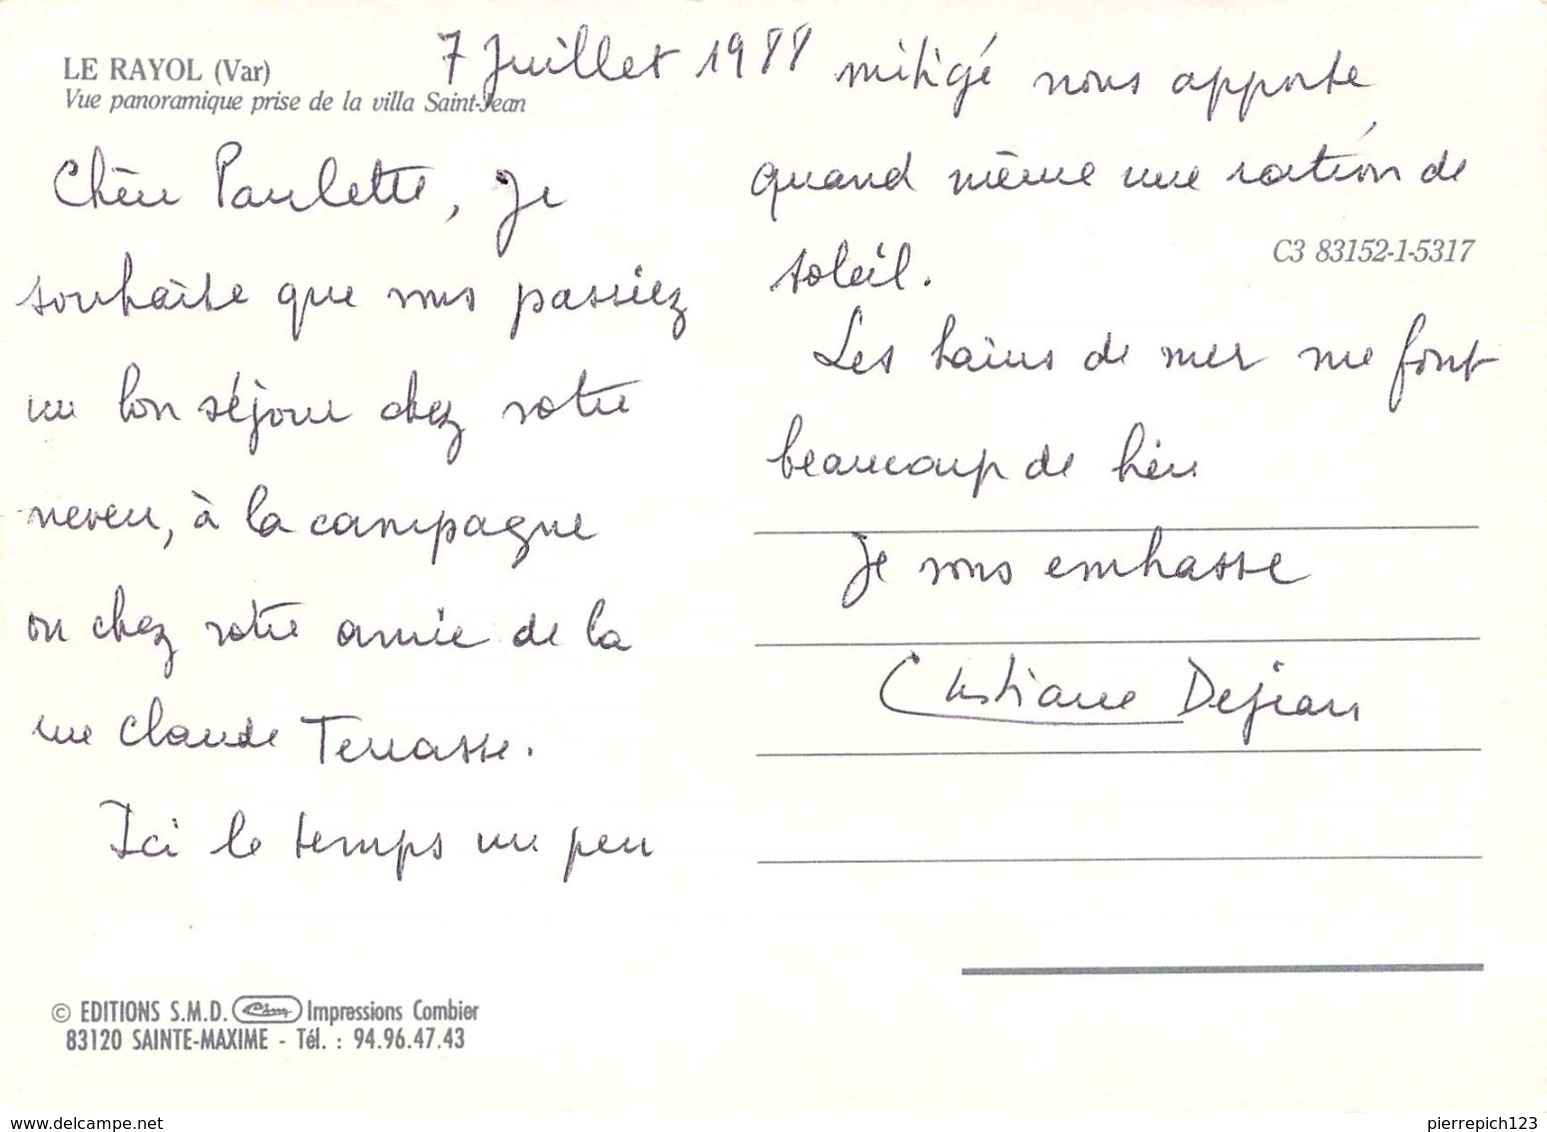 LE RAYOL (Var)
Vue panoramique prise de la villa Saint-Jean
7 Juillet 1988
Chère Paulette, Je
souhaite que vous passiez
un bon séjour chez votre
neveu, à la campagne
ou chez votre amie de la
rue Claude Terrasse.
Ici le temps un peu
mitigé nous apporte
quand même une ration de
soleil.
C3 83152-1-5317
Les bains de mer me font
beaucoup de bien
Je vous embrasse
Christiane Dejean
© EDITIONS S.M.D. Cim Impressions Combier
83120 SAINTE-MAXIME - Tél. : 94.96.47.43
www.delcampe.net
pierrepich123